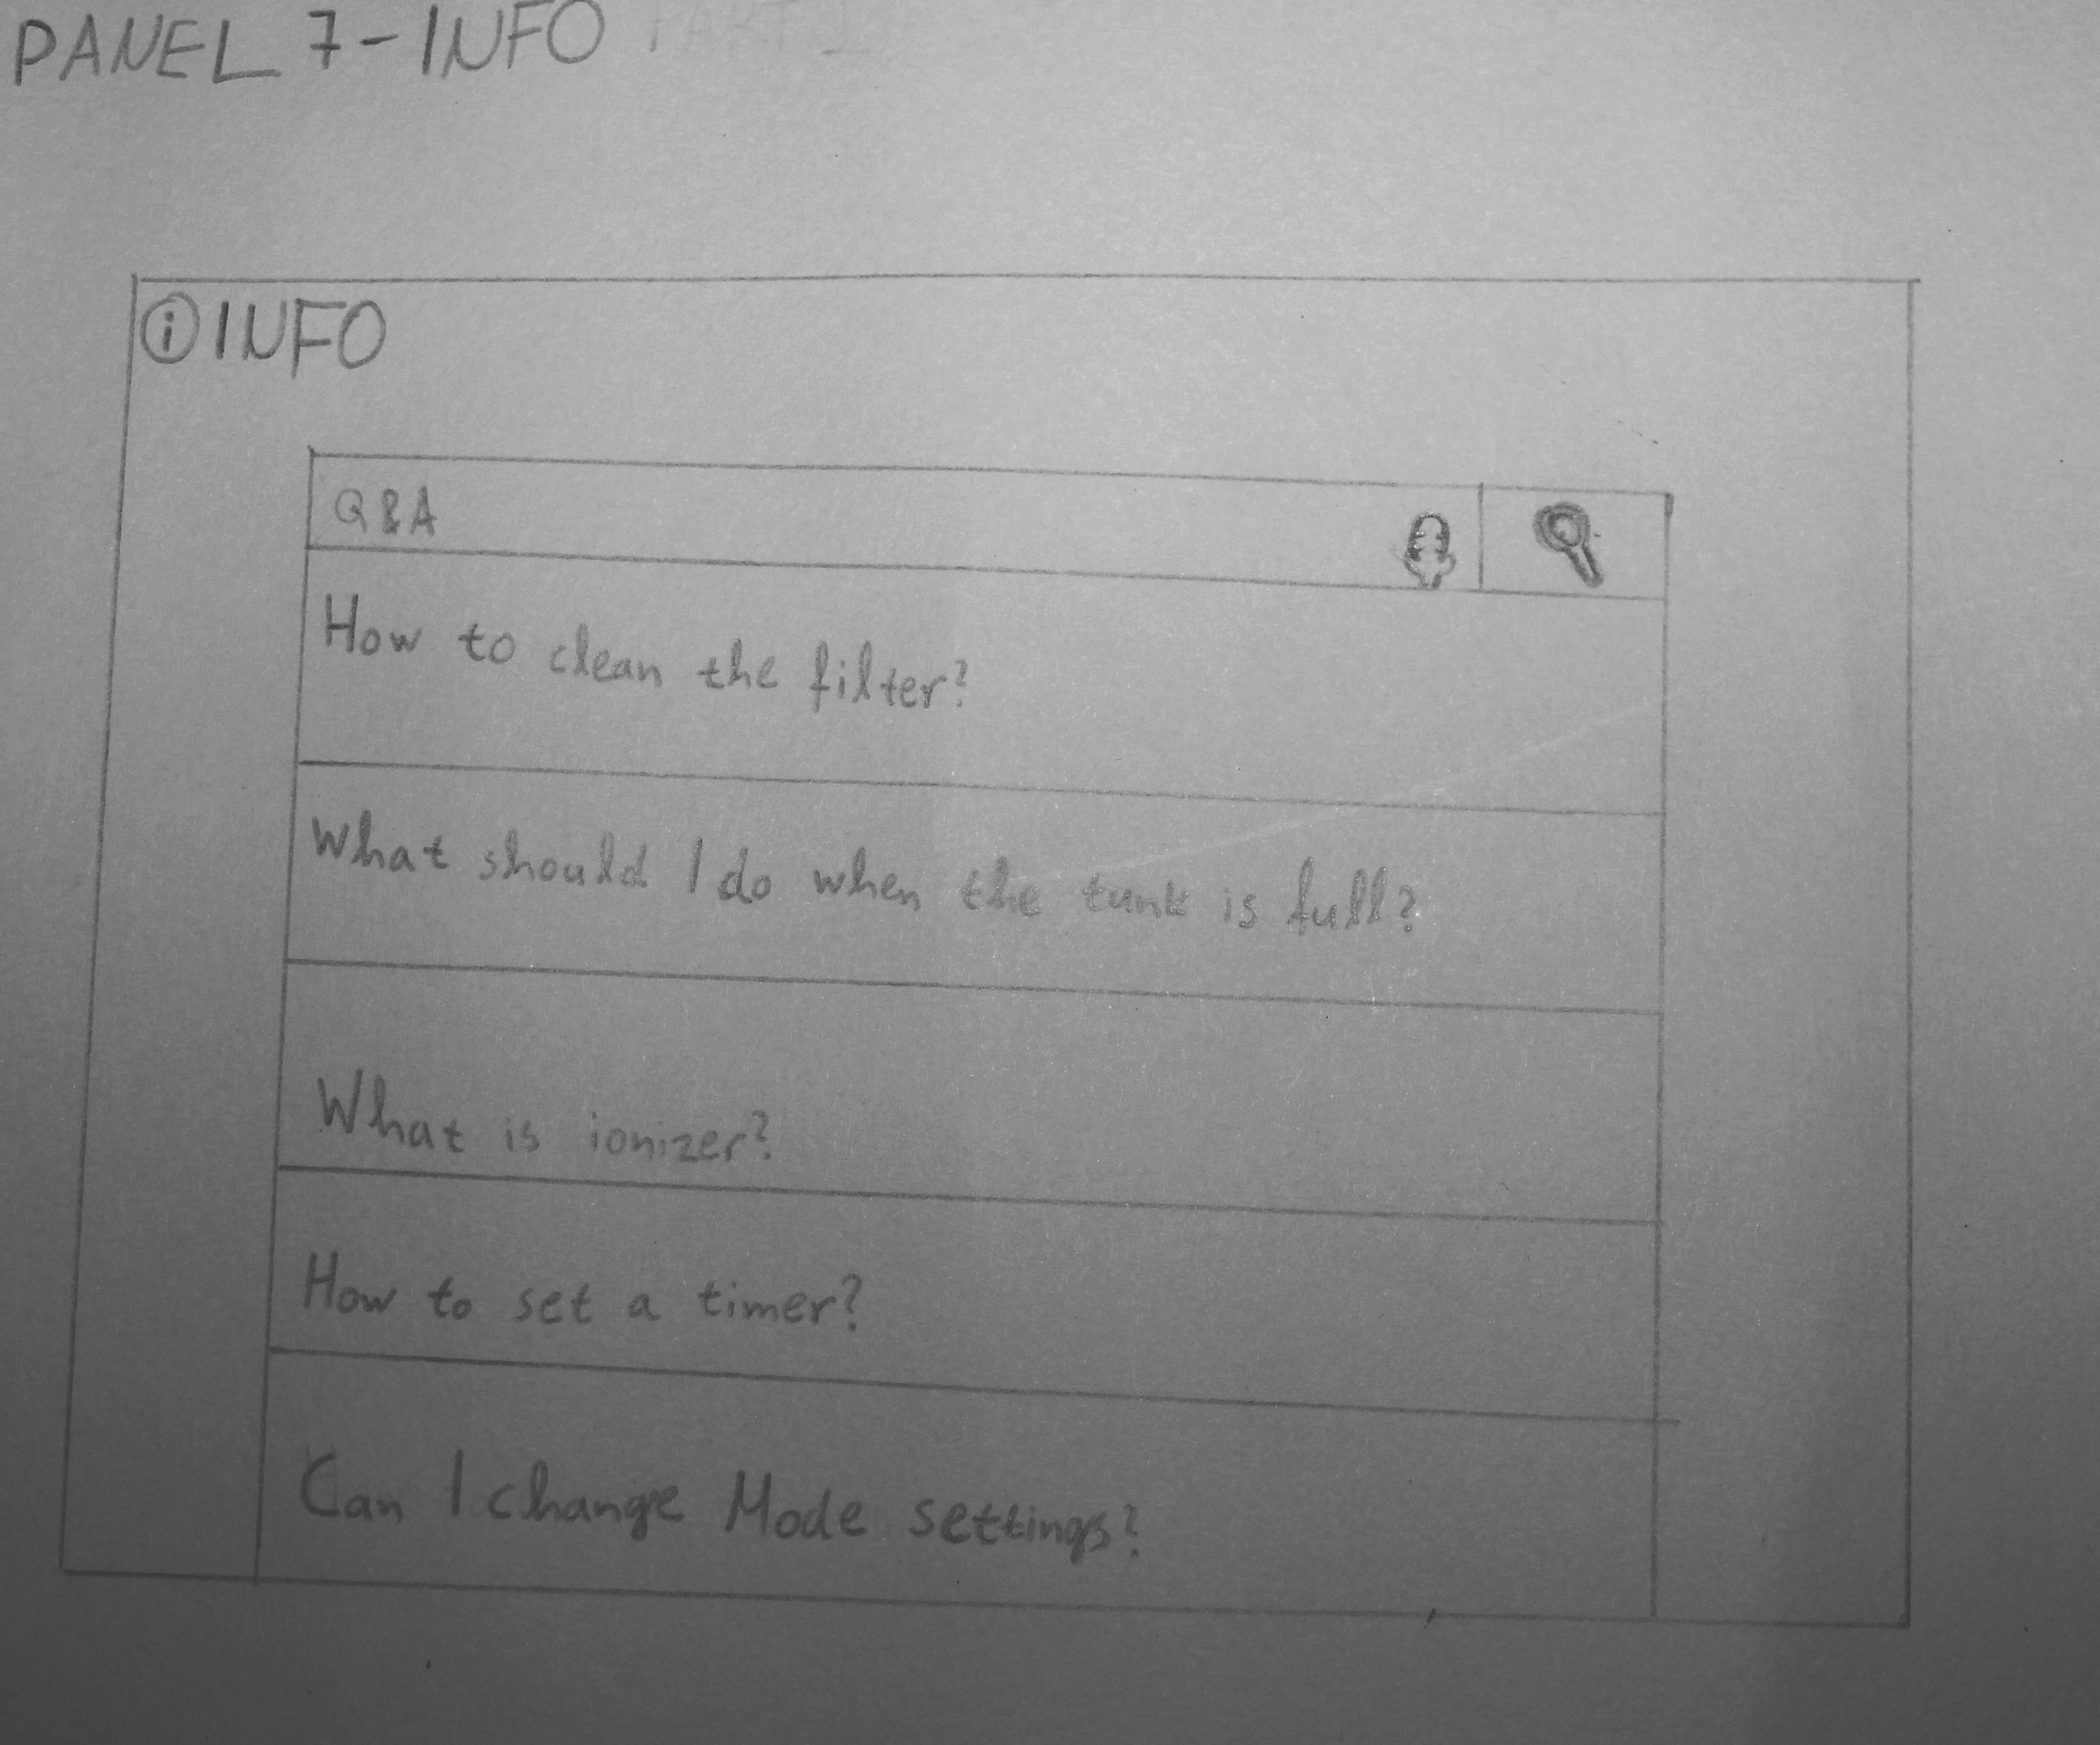 PANEL 7-INFO PART 1
ⓘ INFO
Q&A
How to clean the filter?
What should I do when the tunk is full?
What is ionizer?
How to set a timer?
Can I change Mode settings?